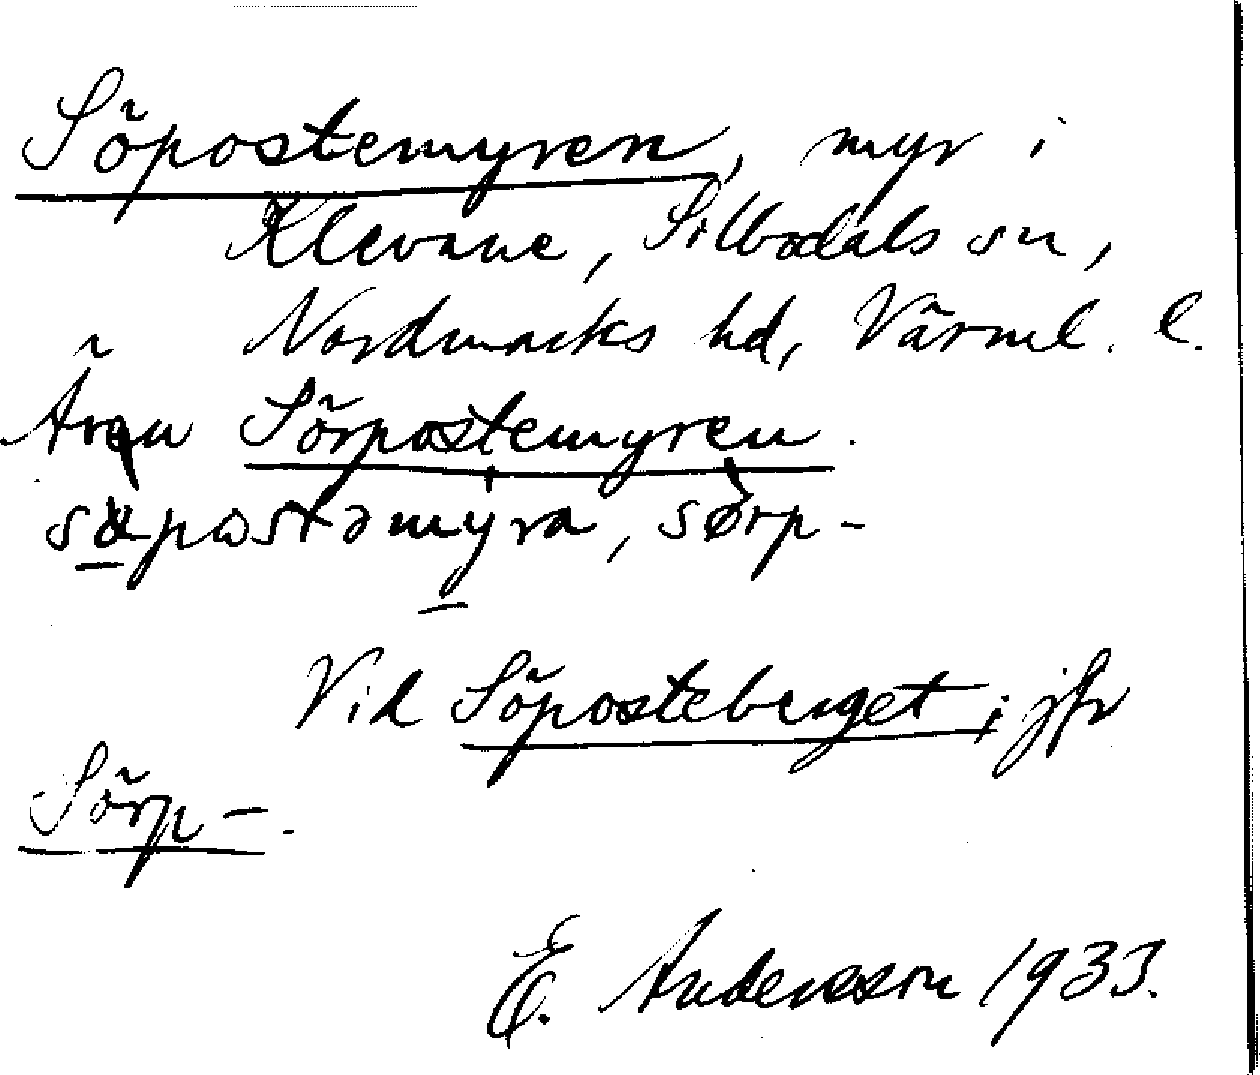 Söpostemyren, myr i
Klevane, Silbodals sn,
Nordmarks hd, Värml. l.
Även Sörpostemyren.
myra, sörp-
Vid Söposteberget; jfr
Sörp-.
E. Andersson 1933.